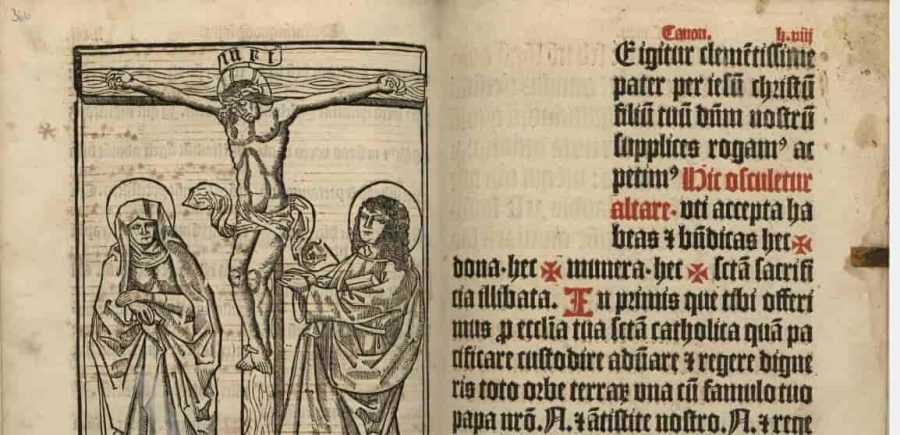 366
INRI
Canon. h.viij
E igitur clemẽtissime
pater per iesũ christũ
filiũ tuũ dñm nostrũ
supplices rogamꝰ ac
petimꝰ Hic osculetur
altare. vti accepta ha
beas ⁊ bñdicas hec ✠
dona. hec ✠ munera. hec ✠ sctã sacrifi
cia illibata. In primis que tibi offeri
mus ꝓ ecclĩa tua sctã catholica quã pa
cificare custodire adũare ⁊ regere digne
ris toto orbe terraꝝ vna cũ famulo tuo
papa nrõ. N. ⁊ ãtistite nostro. N. ⁊ rege